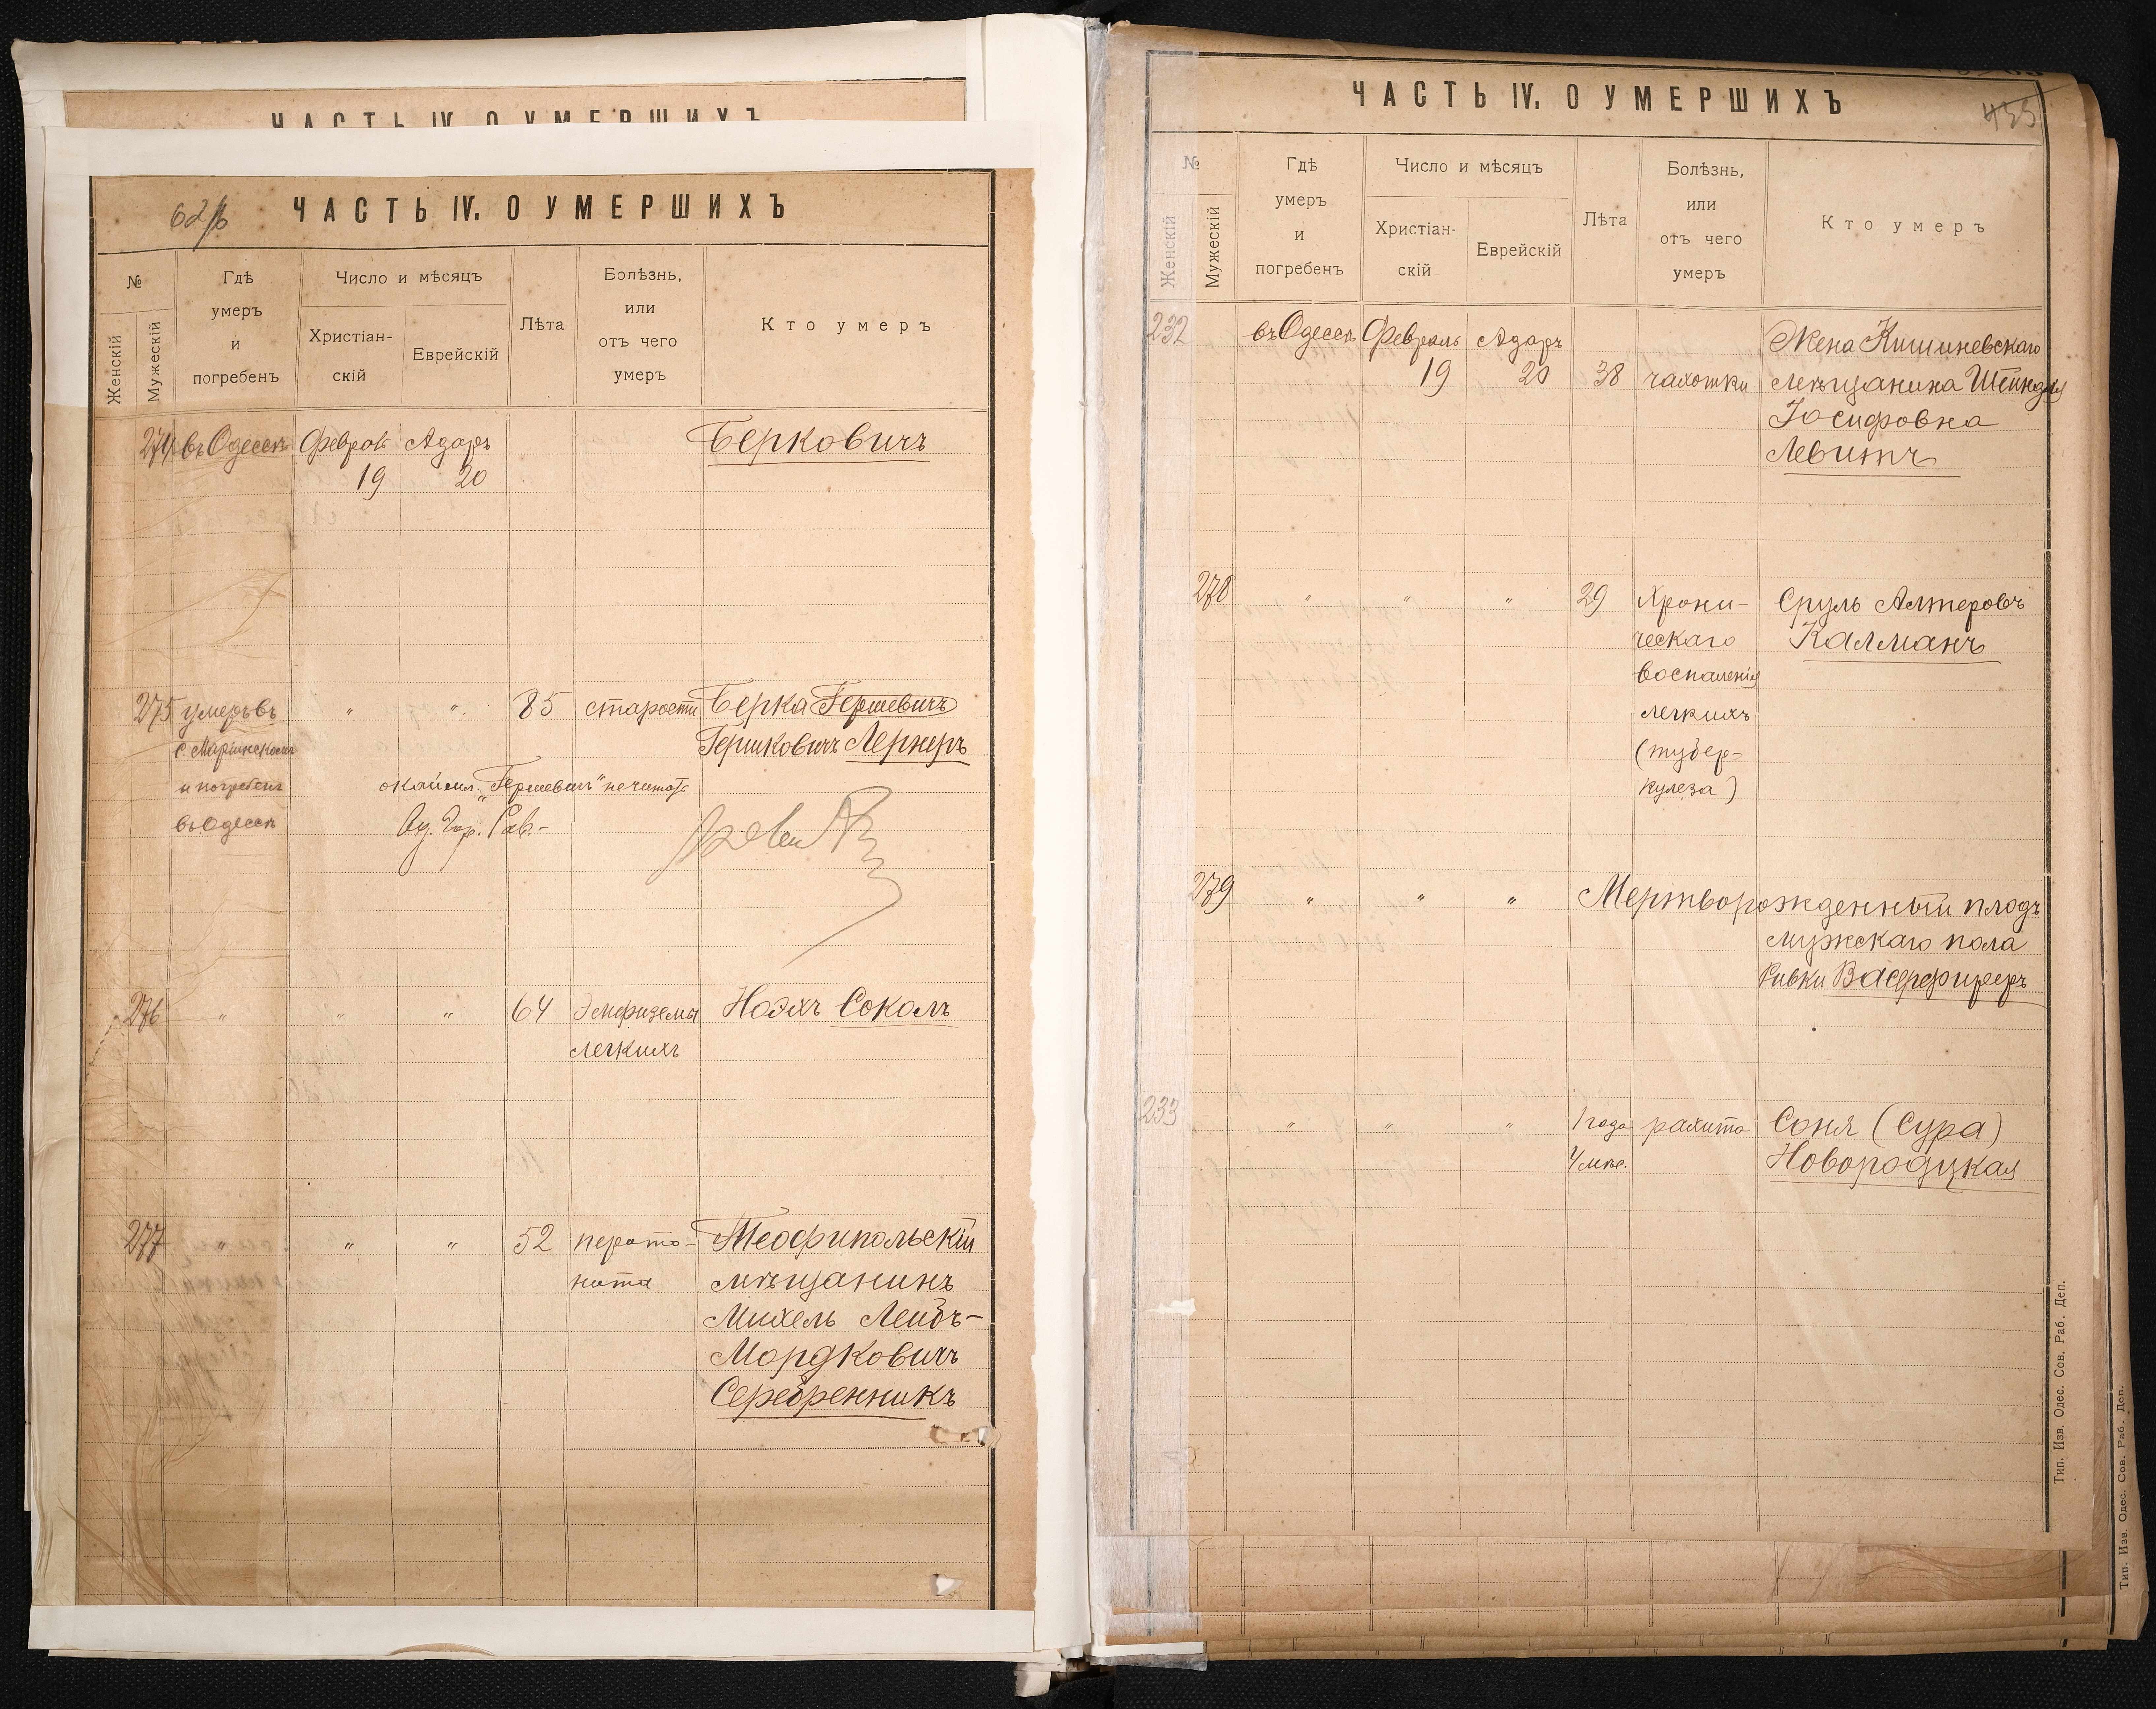 ЧАСТЬ IV. О УМЕРШИХЪ
ЧАСТЬ IV. О УМЕРШИХЪ
№
Женскій
Мужескій
Гдѣ
умеръ
и
погребенъ
Число и мѣсяцъ
Христіан-
скій
Еврейскій
Лѣта
Болѣзнь,
или
отъ чего
умеръ
Кто умеръ
274 въ Одессѣ Феврал Адаръ Берковичъ
19 20
275 умеръ въ " " 85 старости Берка Гершевичъ
Гершковичъ Лернеръ
и погребенъ окаймл. „Гершевичъ" не читать
въ Одессѣ Од. Гор. Рав.-
276 " " " 64 Эмфиземы Ноэхъ Соколъ
легкихъ
277 " " " 52 перито- Теофипольскій
нита мѣщанинъ
Михель Лейбъ-
Мордковичъ
Серебренникъ
ЧАСТЬ IV. О УМЕРШИХЪ
435
№
Женскій
Мужескій
Гдѣ
умеръ
и
погребенъ
Число и мѣсяцъ
Христіан-
скій
Еврейскій
Лѣта
Болѣзнь,
или
отъ чего
умеръ
Кто умеръ
232 въ Одессѣ Февраль Адаръ Жена Кишиневскаго
19 20 38 чахотки мѣщанина Шейндля
Іосифовна
Левитъ
278 " " " 29 Хрони- Сруль Алтеровъ
ческаго Калманъ
воспаленія
легкихъ
(тубер-
кулеза)
279 " " " Мертворожденный плодъ
мужскаго пола
Ривки Васерфирер
233 " " " 1 года рахита Соня (Сура)
4 мѣс. Новородцкая
Тип. Изв. Одес. Сов. Раб. Деп.
Тип. Изв. Одес. Сов. Раб. Деп.